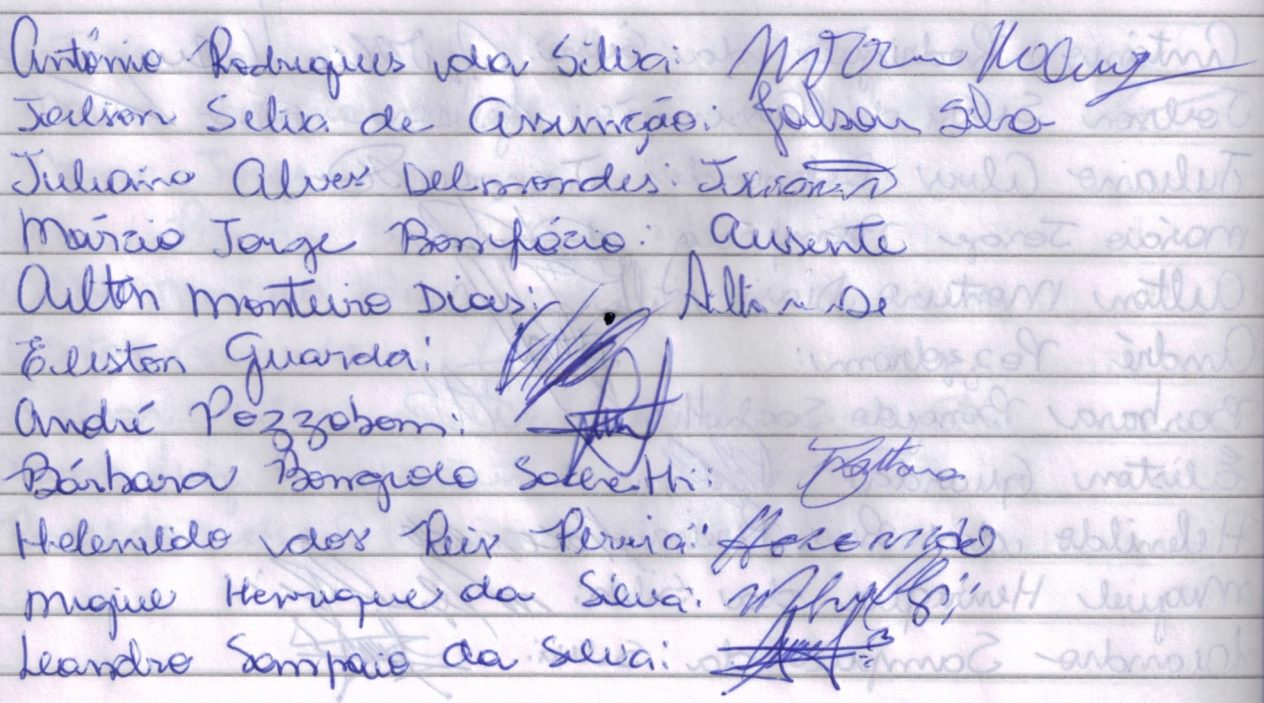 Antônio Rodrigues da Silva:
Joilson Selva de Assunção: Joilson Silva
Juliano Alves Delmondes: Juliano
Márcio Jorge Bonifácio: Ausente
Ailton Monteiro Dias:
Eliston Guarda:
André Pozzobom:
Bárbara Sacheatti:
Helenildo dos Reis Pereira: Helenildo
Miguel Henrique da Silva:
Leandro Sampaio da Silva: